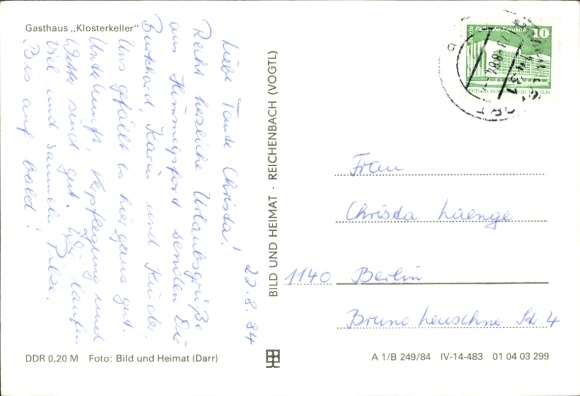 Gasthaus „Klosterkeller"
22.8.84
Liebe Tante Christa!
Recht herzliche Urlaubsgrüße
aus Himmelpfort senden Dir
Burkhard, Karin und Kinder.
Uns gefällt es hier ganz gut.
Unterkunft, Verpflegung und
Wetter sind gut. Wir laufen
viel und sammeln Pilze.
Bis auf bald!
BILD UND HEIMAT · REICHENBACH (VOGTL)
10
Frau
Christa Laenge
1140 Berlin
Bruno Leuschner Str. 4
DDR 0,20 M Foto: Bild und Heimat (Darr)
A 1/B 249/84 IV-14-483 01 04 03 299